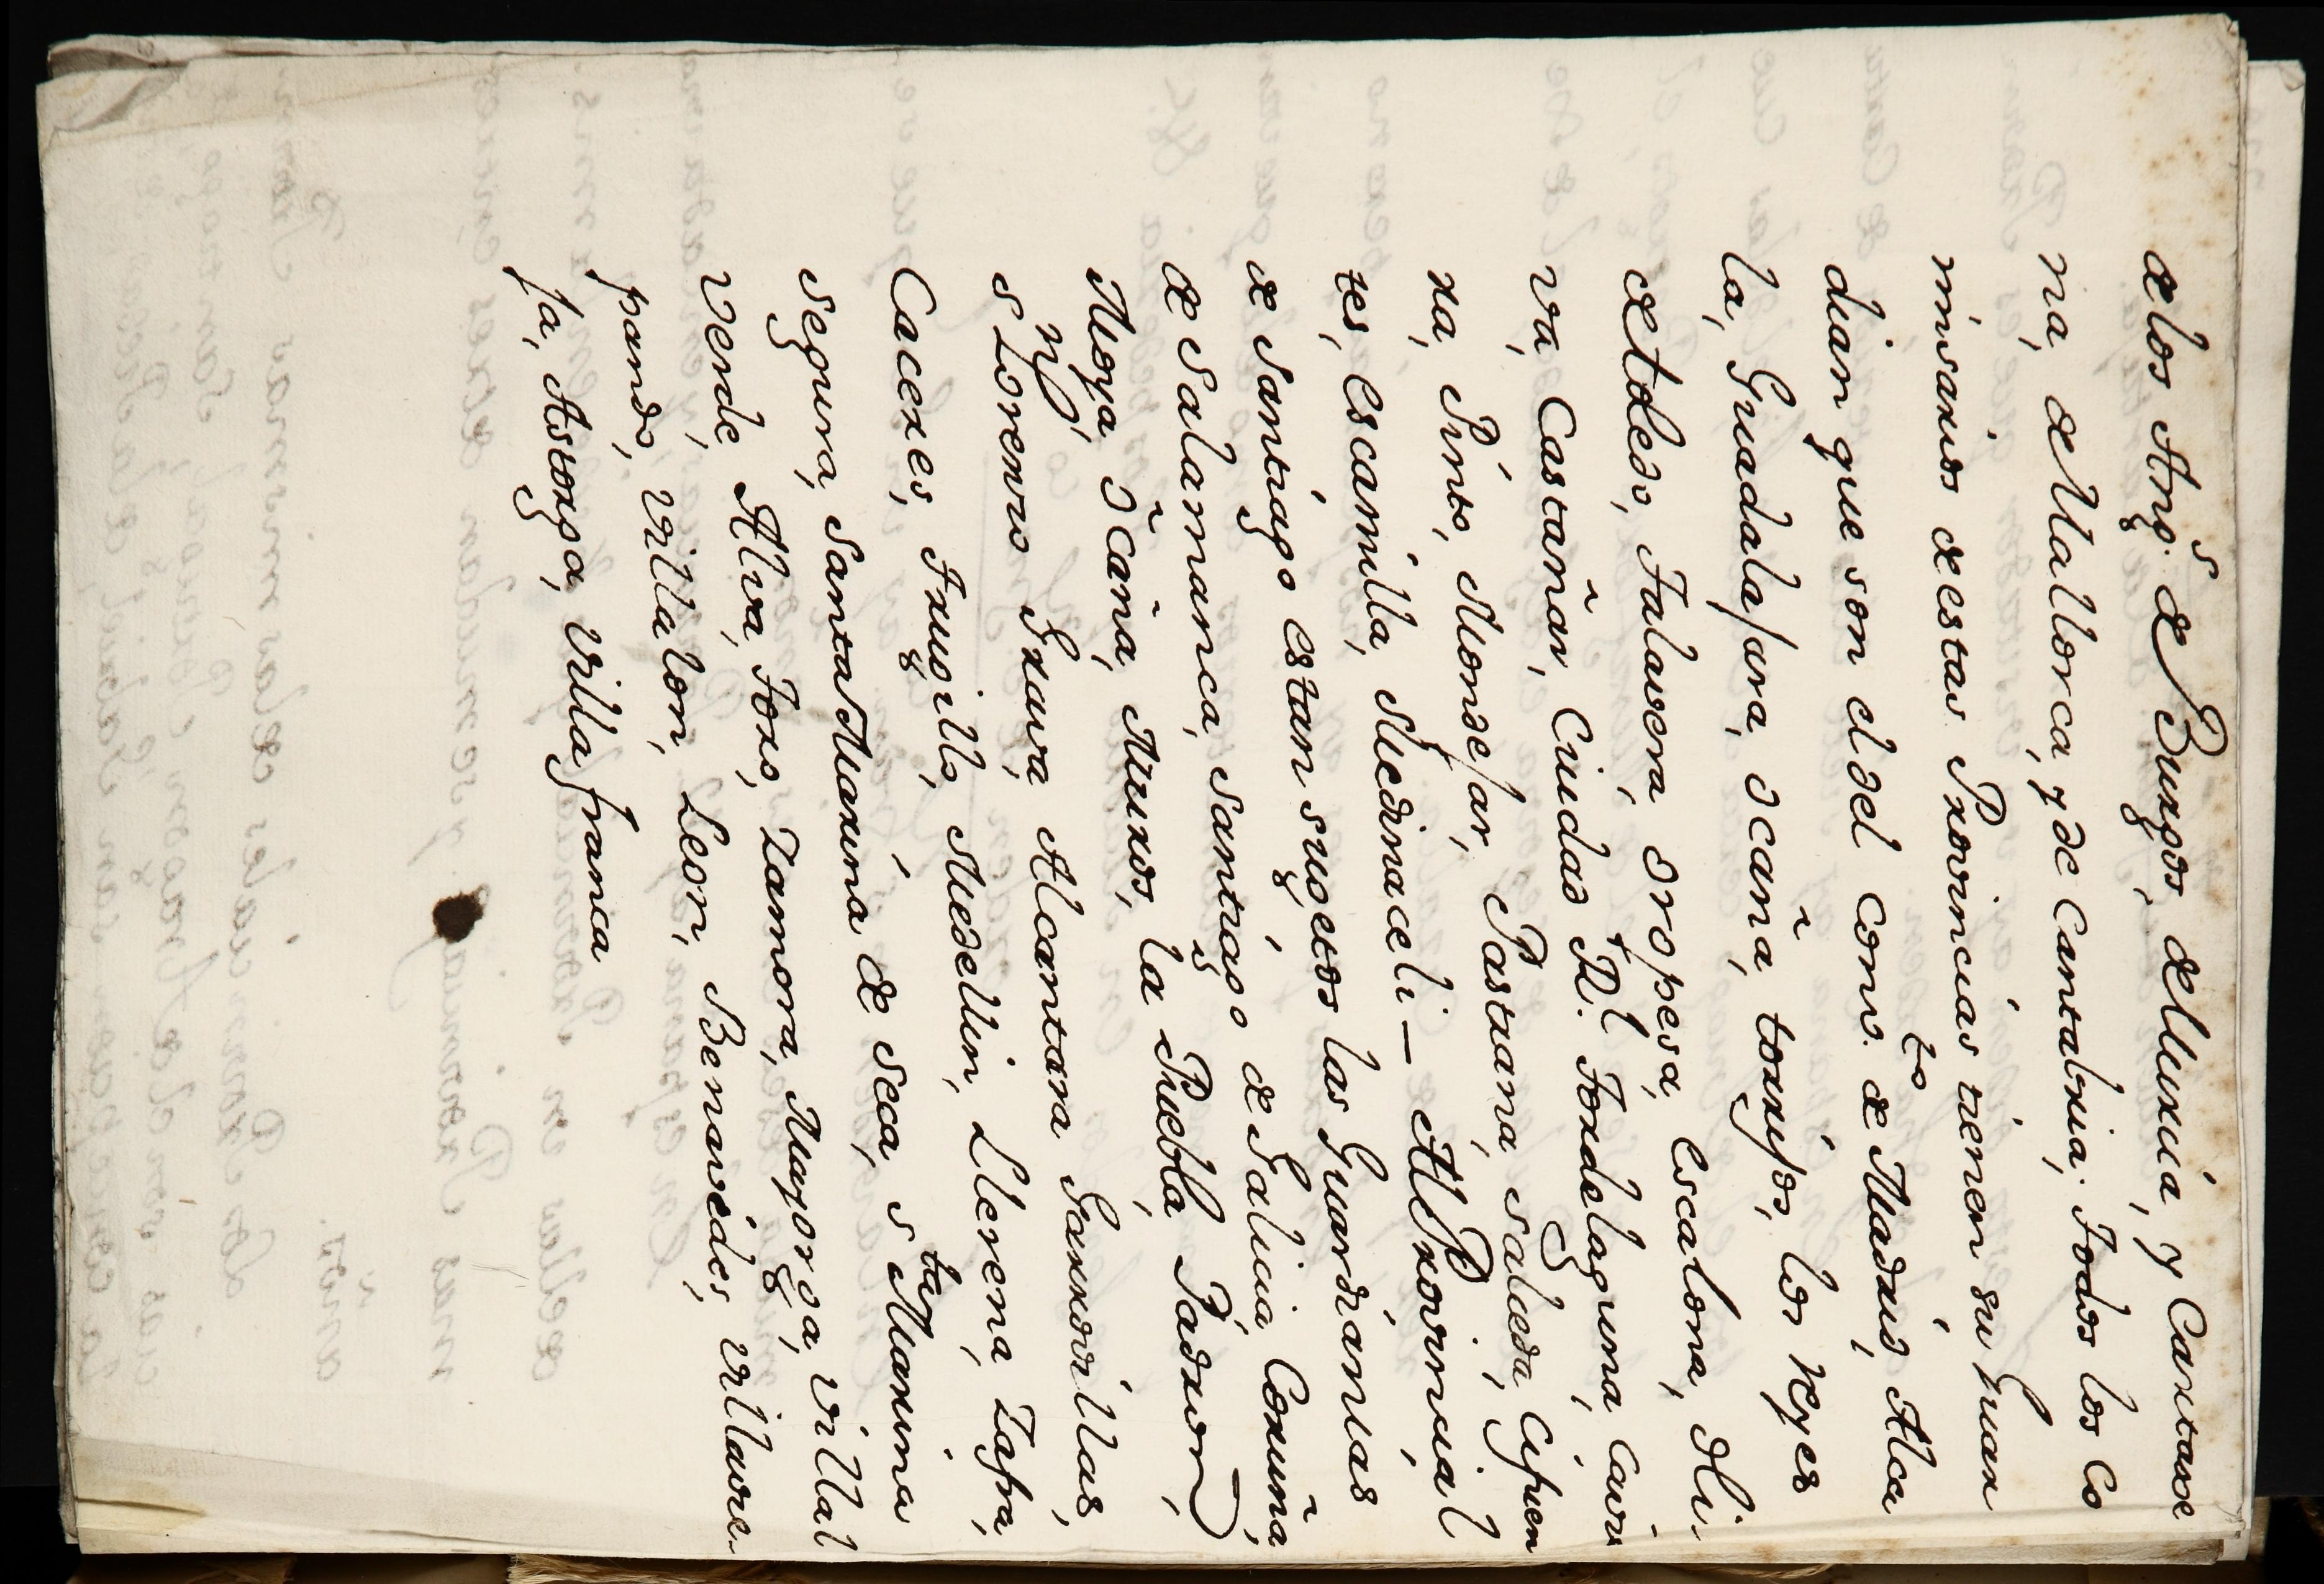 delos Ang.s de Burgos, de Murcia, y Cartaxe
na, de Mallorca, y de Cantabria; Todos los Co
misarios de estas Provincias tienen su Guar
dian que son el del Conv.to de Madrid, Alca
la, Guadalajara, Ocaña, torrijos, los reyes
de tdedo, Talavera, oropesa, Escalona, Oli
va, Castañar, Ciudad R.l Tordelaguna, Cavre
ra, Pinto, Mondejar, Pastrana, salceda, Cifuen
tes, Escamilla, Medinaceli — Al Provincial
de Santiago estan sugetos las Guardianias
de Salamanca, Santiago de Galicia, Coruña,
Moya, Ocaña, Muros, la Puebla, Padron,
n s Lorenzo Trava, Alcantara, Garrovillas,
Caceres, Truxillo, Medellin, Llerena, Zafra,
Segura, Santa Marina de seca, s.ta Marina
Verde, Alva, Toro, Zamora, Mayorga, Villal
pando, Villalon, Leon, Benavides, Villavre
ja, Astorga, Villafranca